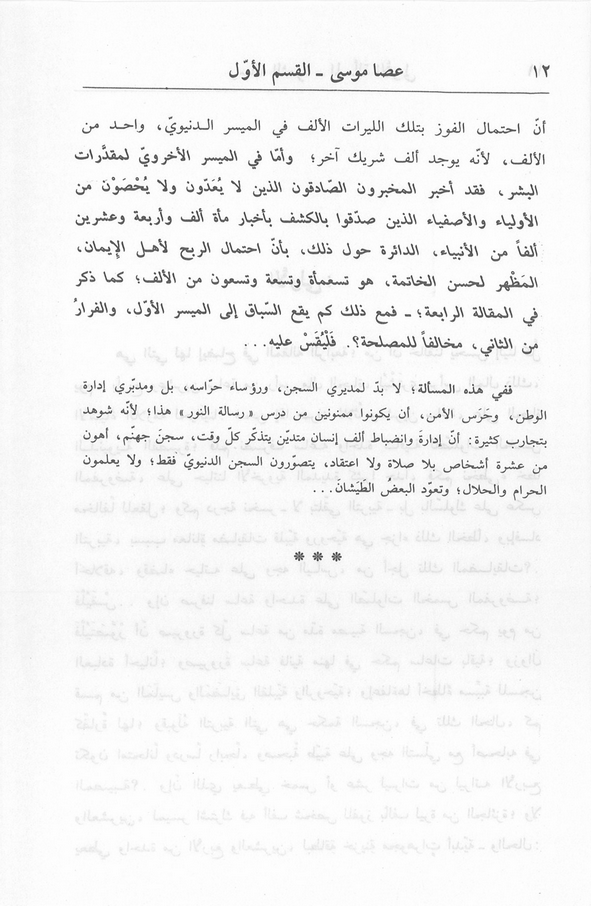 ١٢ عصا موسى - القسم الأوّل
أنّ احتمال الفوز بتلك الليرات الألف في الميسر الـدنيويّ، واحـد من
الألف، لأنّه يوجد ألف شريك آخر؛ وأمّا في الميسر الأخرويّ لمقدَّرات
البشر، فقد أخبر المخبرون الصّادقون الذين لا يُعَدّون ولا يُحْصَوْن من
الأولياء والأصفياء الذين صدّقوا بالكشف بأخبار مأة ألف وأربعة وعشرين
ألفاً من الأنبياء، الدائرة حول ذلك، بأنّ احتمال الربح لأهـل الإيمان،
المَظْهر لحسن الخاتمة، هو تسعمأة وتسعة وتسعون من الألف؛ كما ذكر
في المقالة الرابعة؛ - فمع ذلك كم يقع السّباق إلى الميسر الأوّل، والفرارُ
من الثاني، مخالفاً للمصلحة؟. فَلْيُقَسْ عليه...
ففي هذه المسألة؛ لا بدّ لمديري السجن، ورؤساء حرّاسه، بل ومدبّري إدارة
الوطن، وحَرَس الأمن، أن يكونوا ممنونين من درس «رسالة النور» هذا؛ لأنّه شوهد
بتجارب كثيرة: أنّ إدارة وانضباط ألف إنسان متديّن يتذكّر كلّ وقت، سجنَ جهنّم، أهون
من عشرة أشخاص بلا صلاة ولا اعتقاد، يتصوّرون السجن الدنيويّ فقط؛ ولا يعلمون
الحرام والحلال؛ وتعوّد البعضُ الطَيَشانَ...
* * *